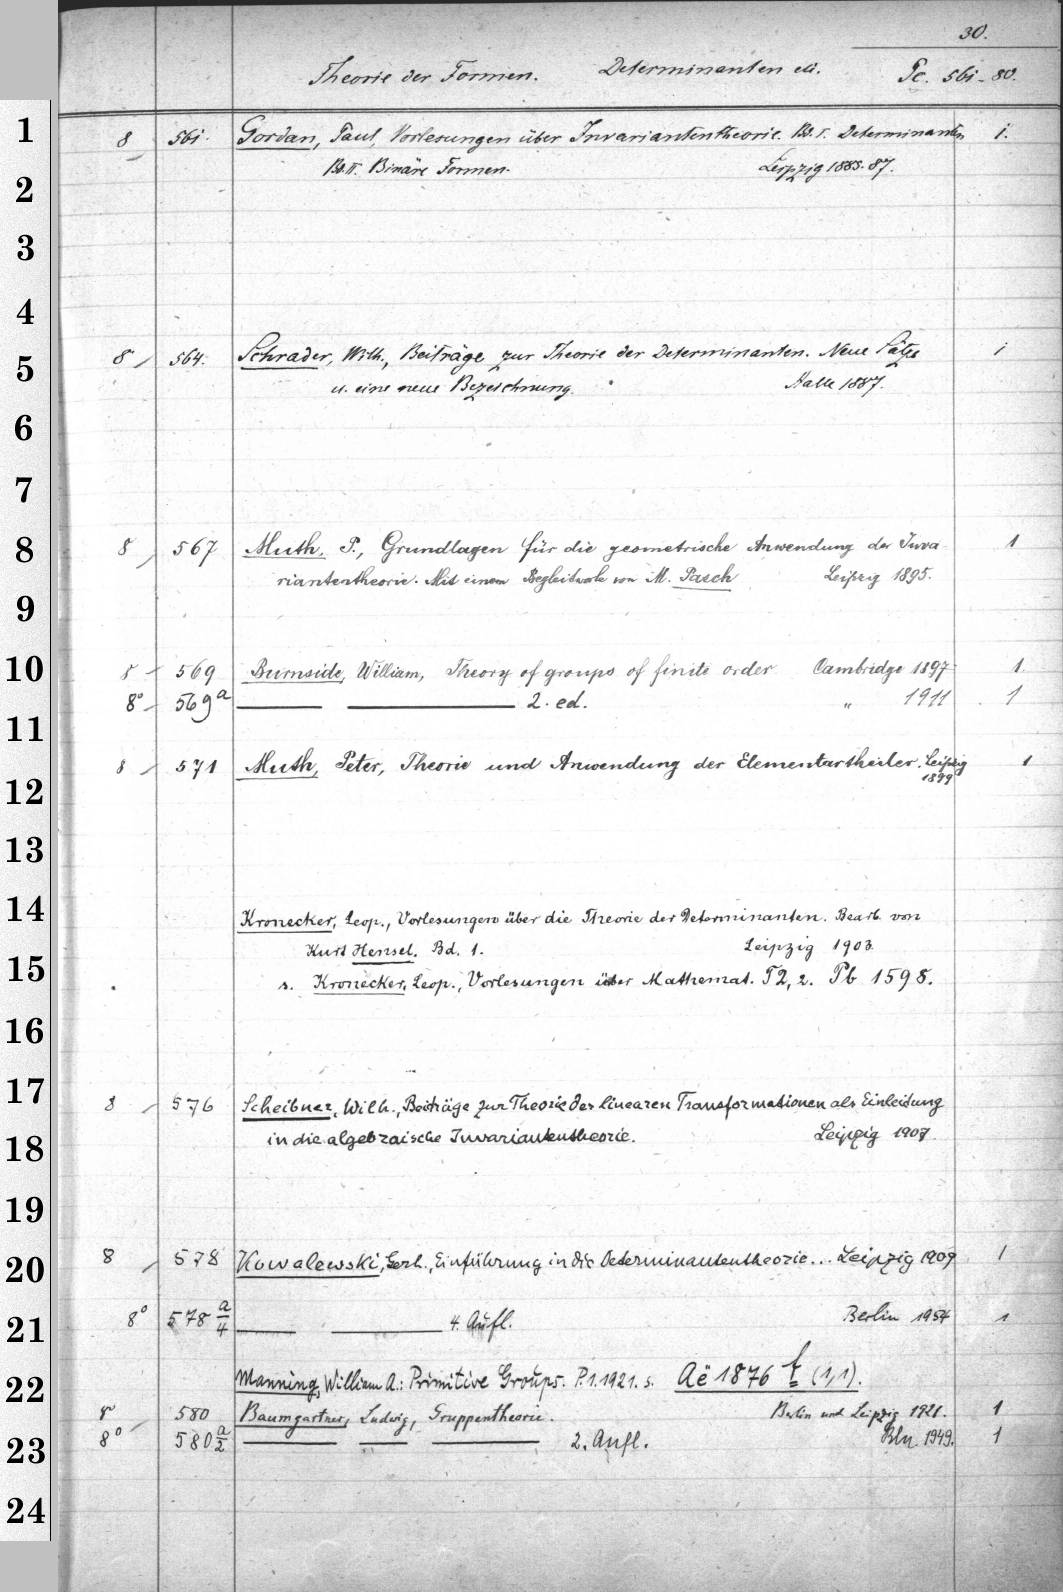 30.
Theorie der Formen. Determinanten etc. Pc. 561-80.
1
8 561. Gordan, Paul, Vorlesungen über Invariantentheorie. Bd. I. Determinanten 1.
Bd. II. Binäre Formen. Leipzig 1885-87.
2
3
4
8 564. Schrader, Wilh., Beiträge zur Theorie der Determinanten. Neue Sätze 1
5
u. eine neue Bezeichnung. Halle 1887.
6
7
8
8 567 Muth, P., Grundlagen für die geometrische Anwendung der Inva- 1
riantentheorie. Mit einem Begleitworte von M. Pasch Leipzig 1895.
9
10
8 569 Burnside, William, Theory of groups of finite order Cambridge 1897 1
8° 569a 2. ed. " 1911 1
11
8 571 Muth, Peter, Theorie und Anwendung der Elementartheiler. Leipzig 1
1899
12
13
14
Kronecker, Leop., Vorlesungen über die Theorie der Determinanten. Bearb. von
Kurt Hensel. Bd. 1. Leipzig 1903
15
s. Kronecker, Leop., Vorlesungen über Mathemat. T2, 2. Pb 1598.
16
17
8 576 Scheibner, Wilh., Beiträge zur Theorie der linearen Transformationen als Einleitung
in die algebraische Invariantentheorie. Leipzig 1907.
18
19
20
8 578 Kowalewski, Gerh., Einführung in die Determinantentheorie... Leipzig 1909 1
8° 578 a/4 4. Aufl. Berlin 1954 1
21
22
Manning, William A.: Primitive Groups. P.1.1921. s. Aë 1876 f (1,1).
8 580 Baumgartner, Ludwig, Gruppentheorie. Berlin und Leipzig 1921. 1
8° 580 a/2 2. Aufl. Bln. 1949. 1
23
24